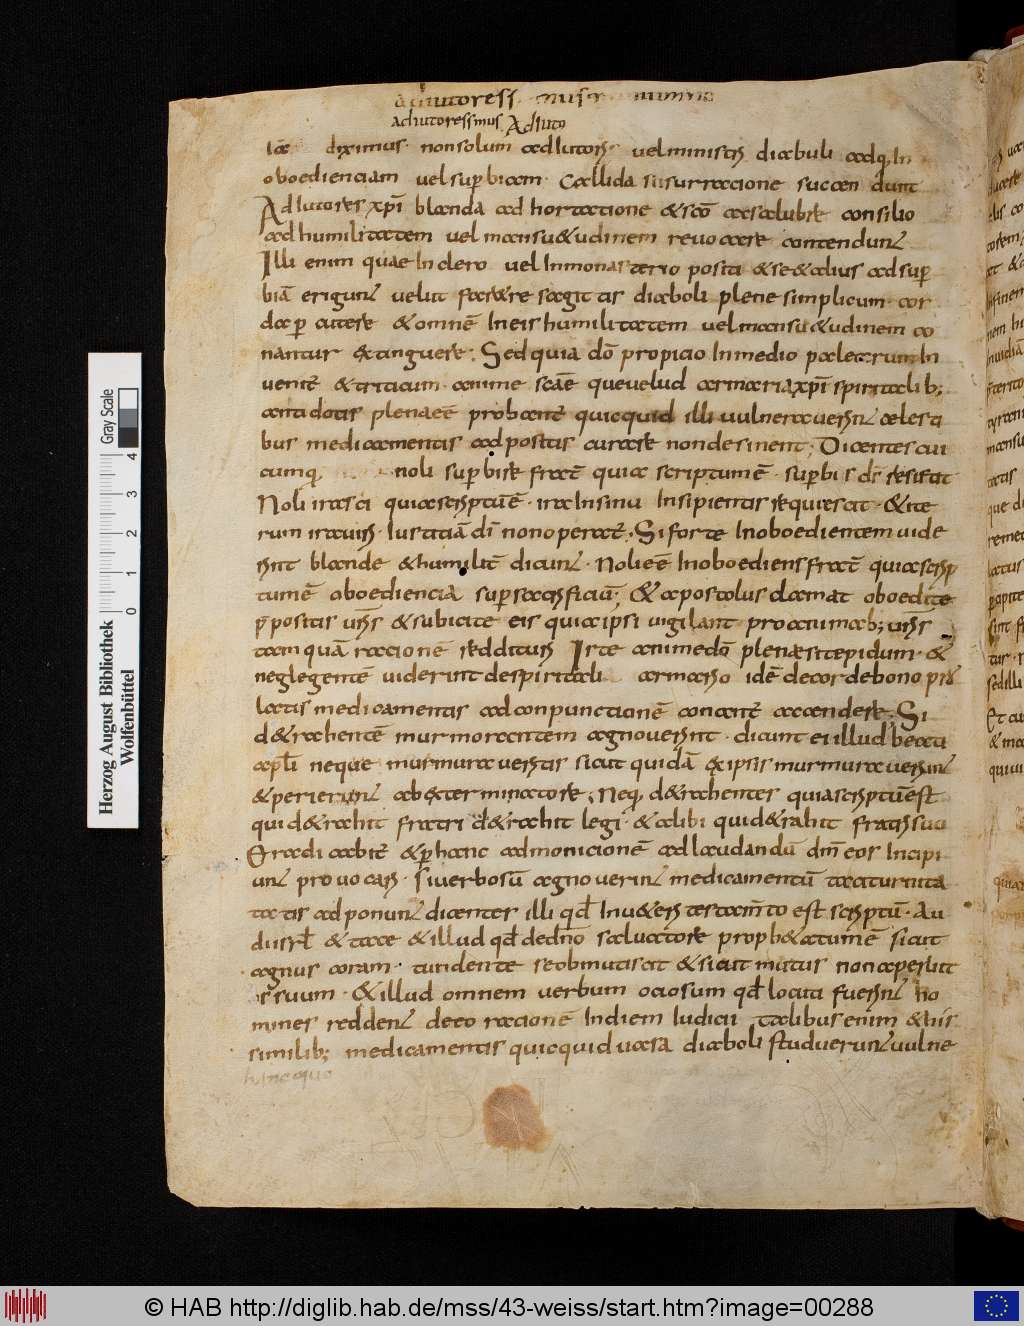 adiutoress
adiutoressmus Adiuto
diximus· nonsolum adiutoris· velministris diabuli adq; In
oboedienciam velsuperbiam· Callida susurracione succendunt
Adiutores xp̄i blanda adhortatione & scō ac salubre consilio
adhumilitatem vel mansu&udinem revocare contendunt
Illi enim quae Inclero vel Inmonasterio positi & se & alius adsup
biā erigunt velut fac& re sagittis diaboli plene simplicum cor
dap cutere & omnē Ineis humilitatem vel mansu&udinem co
nantur extinguere· Sed quia dō propicio Inmedio palearum In
venit̄ & triticum· anime scāe quevelud armaria xp̄i spiritalib;
antidotis plenaeē probant̄ quicquid illi vulneraverint celesti
bus medicamentis adpositis curare nondesinent; Dicentes cui
cumq; noli superbire frat̄ quia scriptumē· superbis dr̄ resistit
Noli irasci quia scriptūē· ira Insinu Insipientis requiescit· & ite
rum ira viri Iustitiā dī nonoperat̄· Si forte Inoboedientem uide
rint blande & humilit̄ dicunt· Nolieē Inoboediens frat̄ quia scrip
tumē oboediencia sup sacrificiū; & apostolus clamat oboedite
p̄positis vr̄is & subicite eis quia ipsi vigilant pro animab; vr̄is
tamquā racionē reddituri Iste animedō plenae si tepidum· &
neglegentē viderint de spiritali armario idē de cordebono
latis medicamentis adconpunctionē conant̄ accendere· Si
d&rahentē murmorantem agnoverint· dicunt ei illud beati
apl̄i neque murmuraveritis sicut quidā ex ipsis murmuraverunt
& perierunt ab exterminatore· Neq; d&rahentes quia scriptūest
qui d&rahit fratri d&rahit legi· & alibi qui d&rahit fratri suo
Eradicabit̄ & p hanc admonicionē adlaudandū dm̄ eos Incipi
unt provocare· si verbosū agnoverint medicamentū taciturnita
tatis adponunt dicentes illi qd̄ Inv&eri testam̄to est scriptū· Au
di isrl̄ & tace & illud qd̄ dedn̄o salvatore proph&atumē sicut
agnus coram· tundente se obmutiscit & sicut mutus non aperuit
os suum· & illud omnem verbum ociosum qd̄ locuti fuerint ho
mines reddent de eo racionē Indiem Iudicii talibus enim & his
similib; medicamentis quicquid vasa diaboli studuerunt vulne
hinc quo
Herzog August Bibliothek
Wolfenbüttel
0 1 2 3 4
Gray Scale
© HAB http://diglib.hab.de/mss/43-weiss/start.htm?image=00288